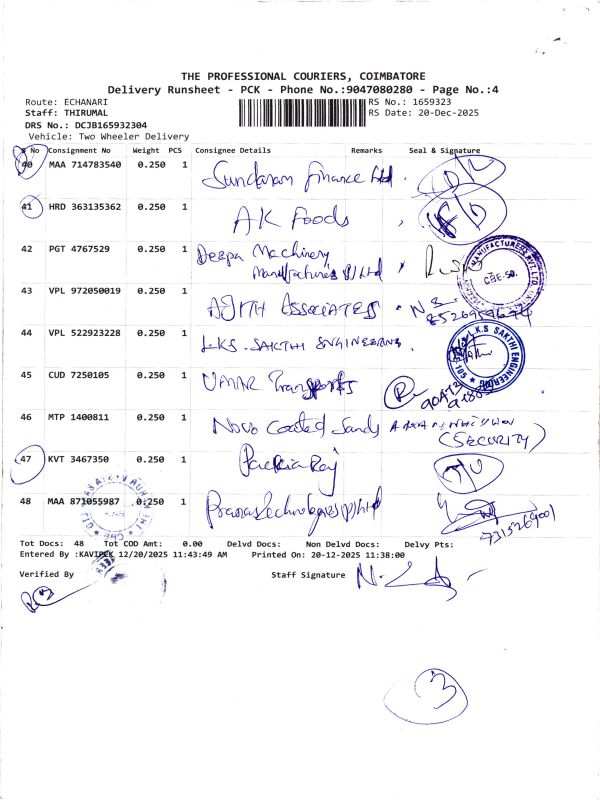 THE PROFESSIONAL COURIERS, COIMBATORE
Delivery Runsheet - PCK - Phone No.:9047080280 - Page No.:4
Route: ECHANARI
RS No.: 1659323
Staff: THIRUMAL
RS Date: 20-Dec-2025
DRS No.: DCJB165932304
Vehicle: Two Wheeler Delivery
S No Consignment No Weight PCS Consignee Details Remarks Seal & Signature
40 MAA 714783540 0.250 1 Sundaram Finance Ltd.
41 HRD 363135362 0.250 1 AK Foods
42 PGT 4767529 0.250 1 Deepa Machinery
Manufacturers P) Ltd
43 VPL 972050019 0.250 1 AJITH ASSOCIATES
44 VPL 522923228 0.250 1 L.K.S. SAKTHI ENGINEERING.
L.K.S SAKTHI ENGINEERING
45 CUD 7250105 0.250 1 UMAR Transports
46 MTP 1400811 0.250 1 Novo Coated Sands
(SECURITY)
47 KVT 3467350 0.250 1
48 MAA 871055987 0.250 1 Technologies P) Ltd
Tot Docs: 48 Tot COD Amt: 0.00 Delvd Docs: Non Delvd Docs: Delvy Pts:
Entered By :KAVIPCK 12/20/2025 11:43:49 AM Printed On: 20-12-2025 11:38:00
Verified By Staff Signature
3